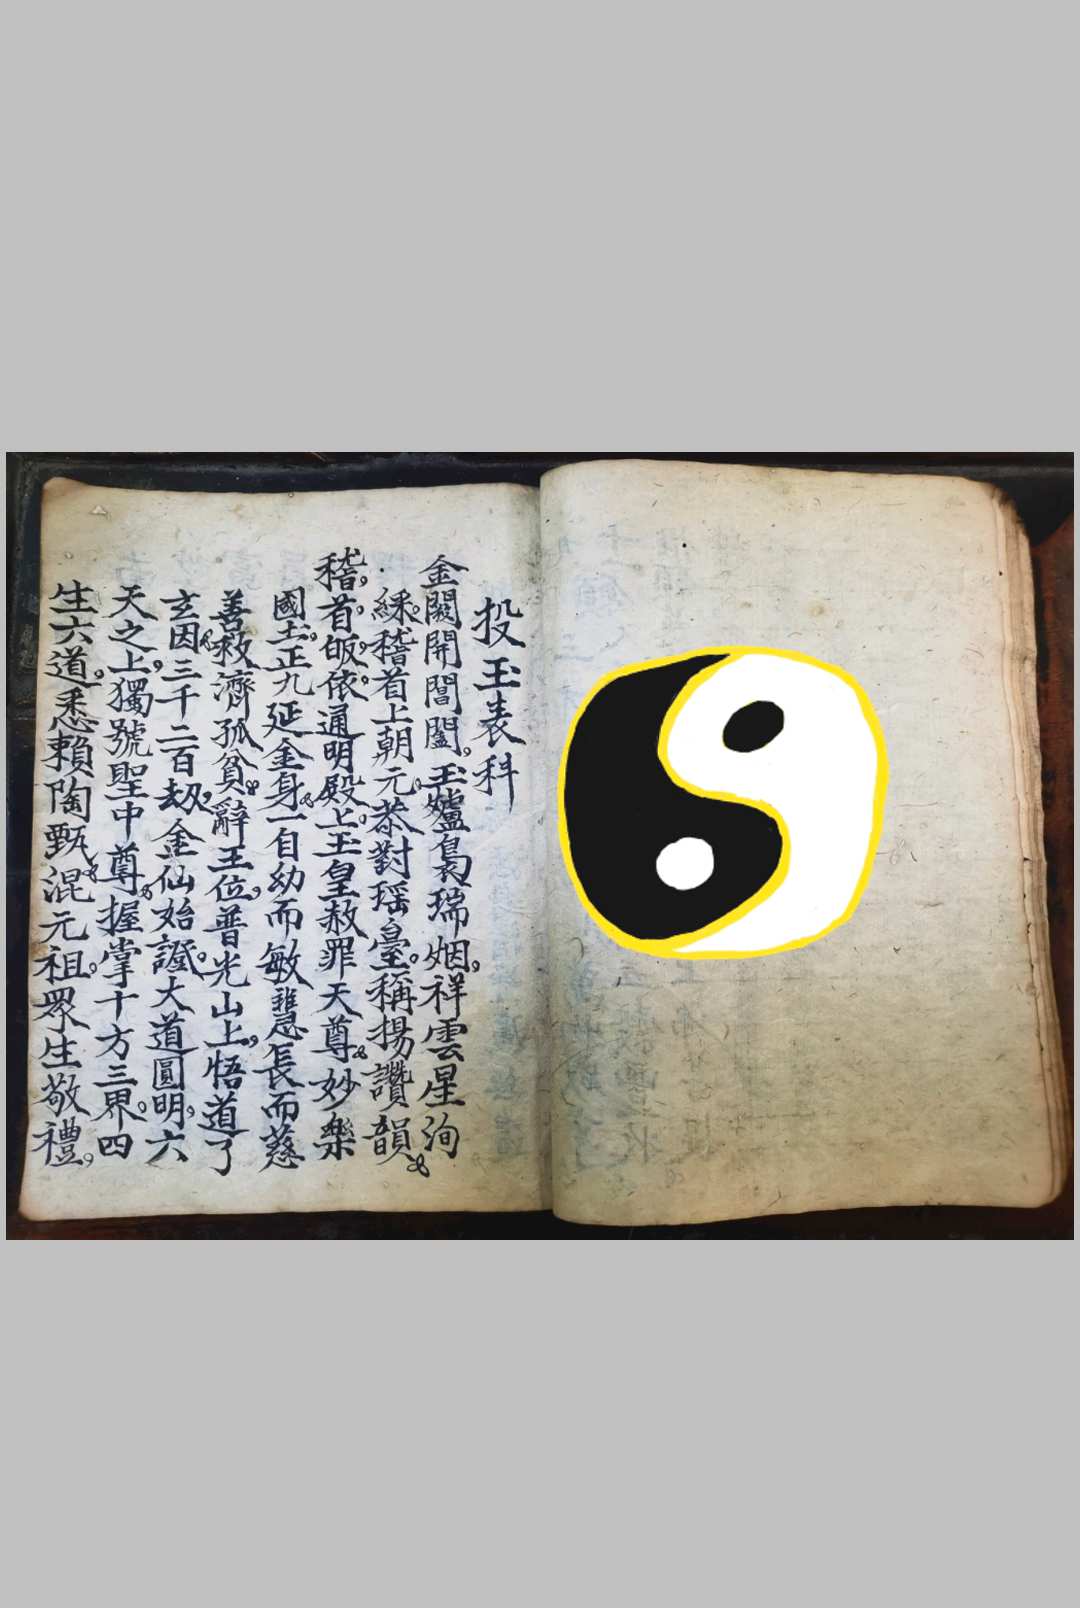 投玉表科
金闕開閶闔玉爐裊瑞烟祥雲星洵
綵稽首上朝元恭對瑶臺稱揚讚韻
稽首皈依通明殿上玉皇赦罪天尊妙樂
國土正九延金身一自幼而敏慧長而慈
善救濟孤貧辭王位普光山上悟道了
玄因三千二百劫金仙始證大道圓明六
天之上獨號聖中尊握掌十方三界四
生六道悉賴陶甄混元祖眾生敬禮